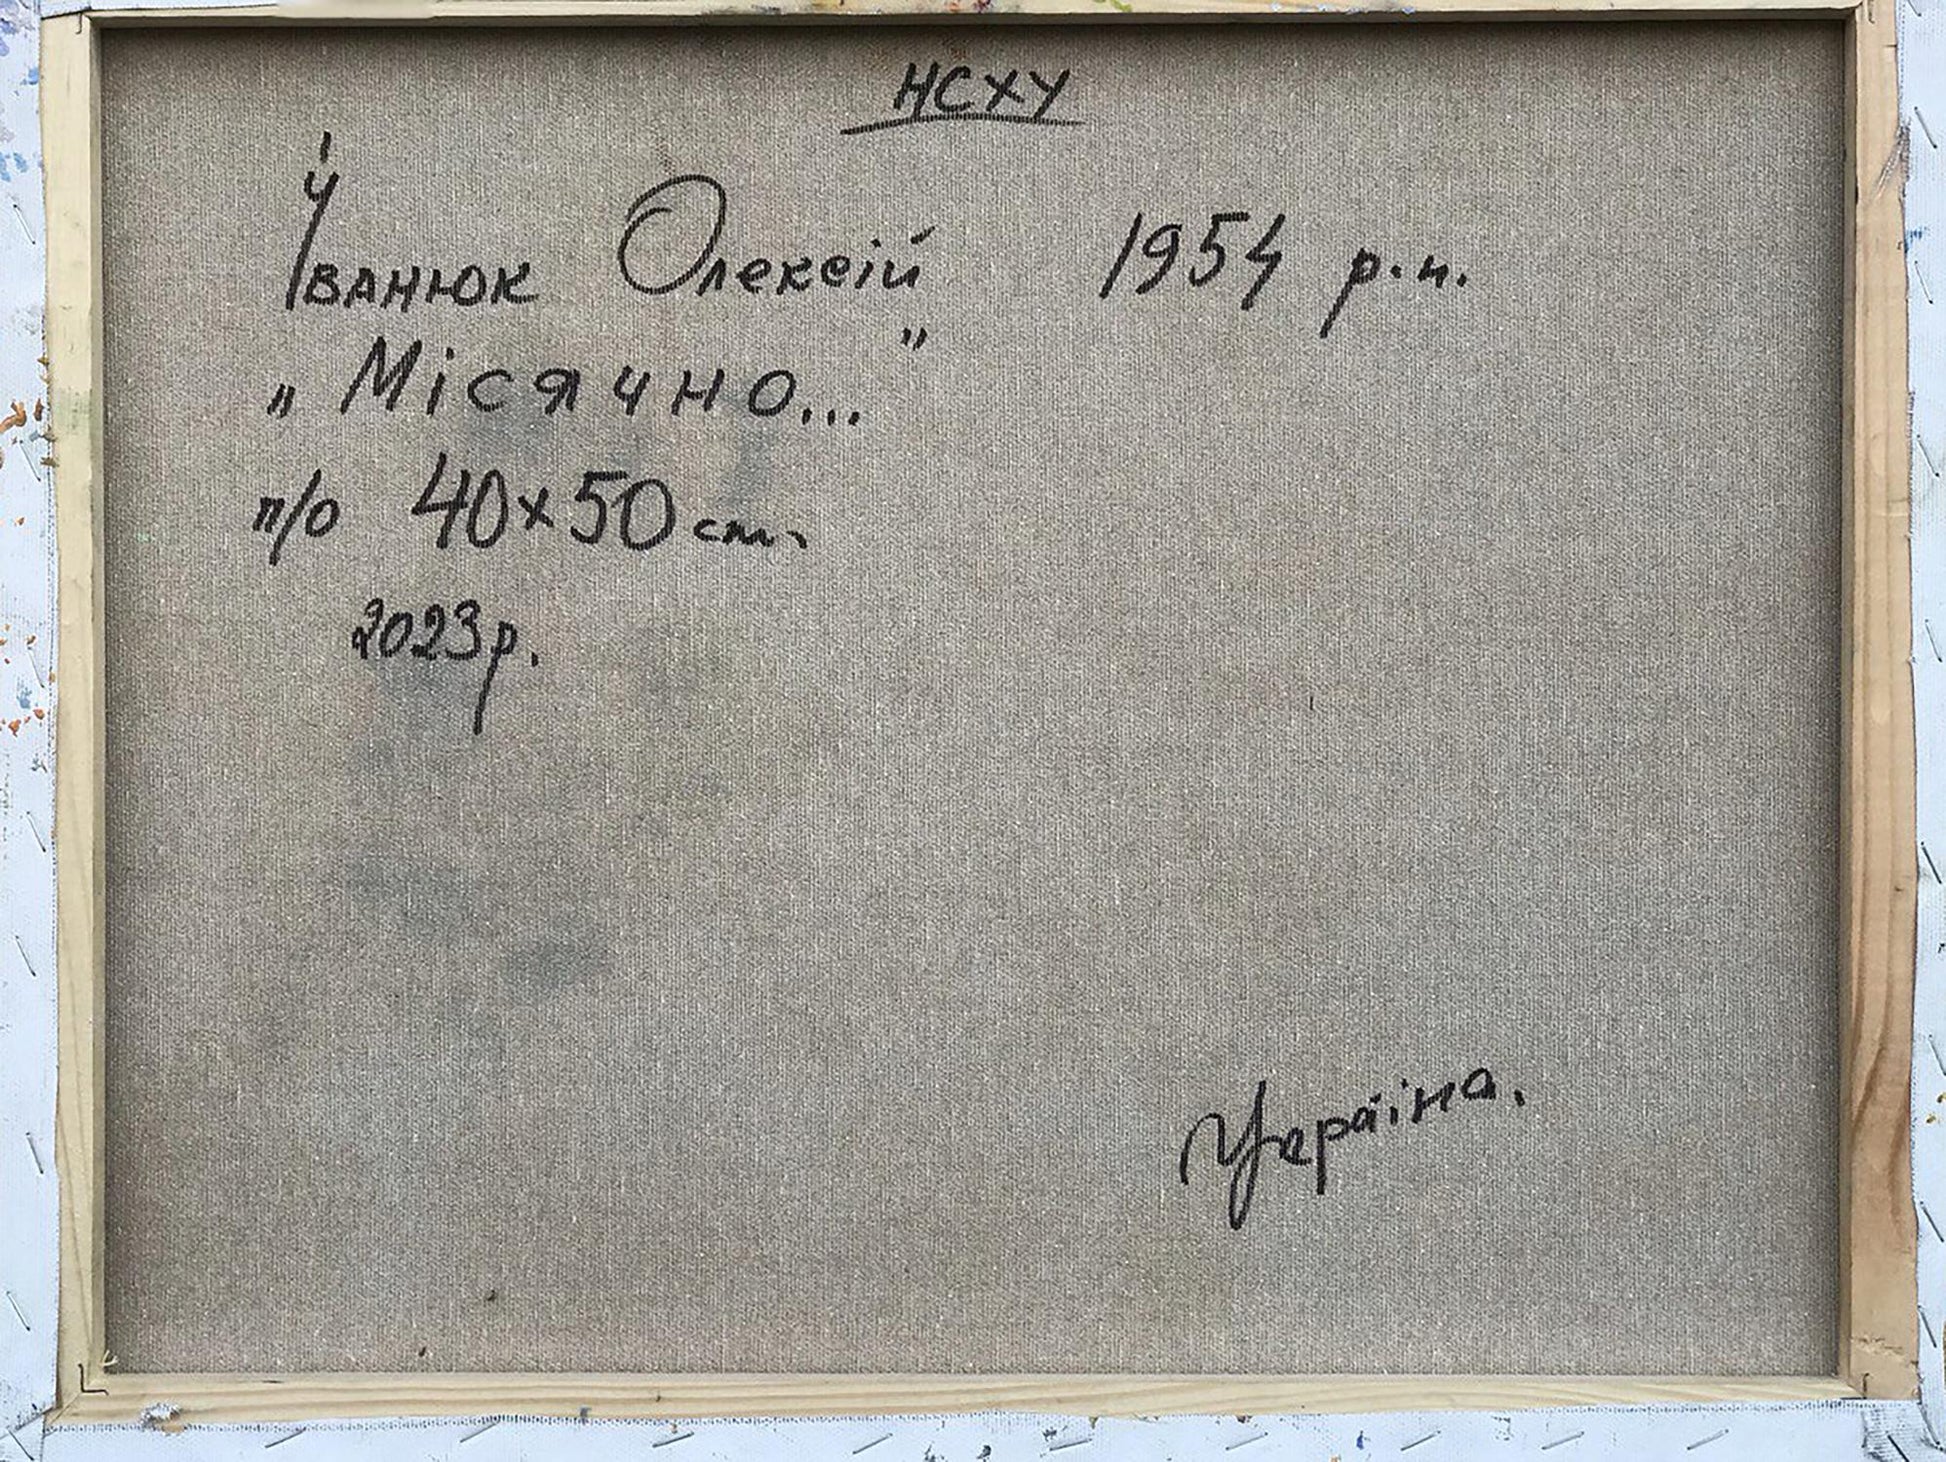 НСХУ
Іванюк Олексій 1954 р.н.
„Місячно..."
п/о 40х50 см.
2023р.
Україна.